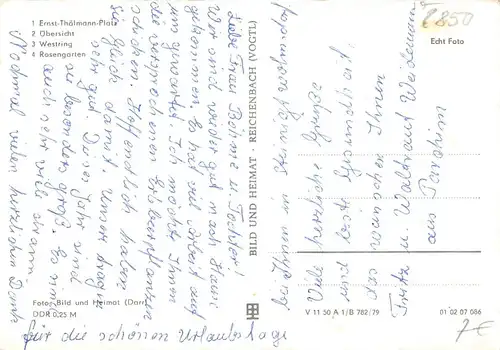 1 Ernst-Thälmann-Platz
2 Übersicht
3 Westring
4 Rosengarten
Echt Foto
Liebe Frau Böhme u. Tochter!
Wir sind wieder gut nach Hause
gekommen. Es hat viel Arbeit auf
uns gewartet. Ich möchte Ihnen
die versprochenen Erdbeerpflanzen
schicken. Hoffentlich haben
Sie Glück damit. Unsere tragen
sehr gut. Dieses Jahr sind
sie besonders groß. Es sind
auch sehr viel dran.
Nochmal vielen herzlichen Dank
für die schönen Urlaubstage
bei Ihnen in
Viele herzliche Grüße
und beste Gesundheit
das wünschen Ihnen
Fritz u. Waltraut Weidemann
aus Parchim
BILD UND HEIMAT · REICHENBACH (VOGTL)
Foto: Bild und Heimat (Darr)
DDR 0,25 M
V 11 50 A 1/B 782/79
01 02 07 086
7€